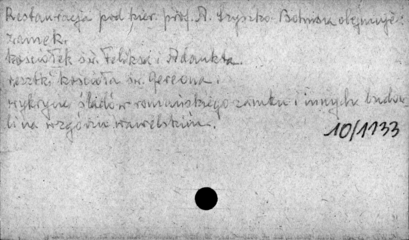 Restauracja pod kier. prof. A. Szyszko-Bohusza obejmuje:
zamek.
kościółek św. Feliksa i Adaukta.
resztki kościoła św. Gereona.
wykrycie śladów romańskiego zamku i innych budow
li na wzgórzu wawelskim.
10/1133